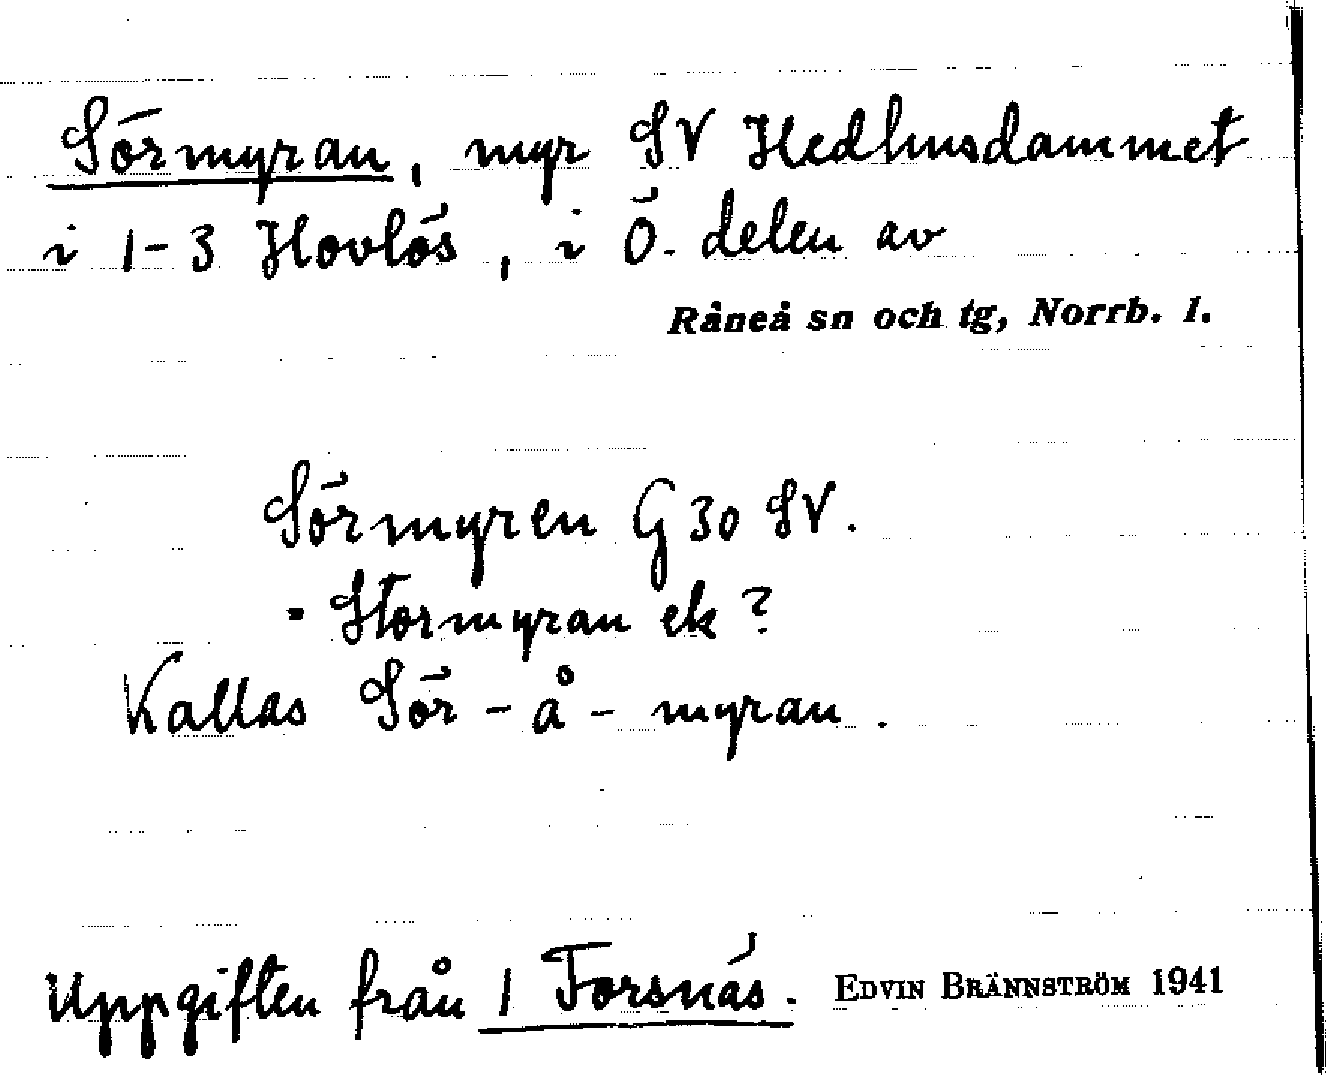 Sörmyran, myr SV Hedhusdammet
i 1-3 Hovlös, i Ö. delen av
Råneå sn och tg, Norrb. l.
Sörmyren G 30 SV.
- Stormyran ek?
Kallas Sör-å-myran.
Uppgiften från 1 Forsnäs. EDVIN BRÄNNSTRÖM 1941